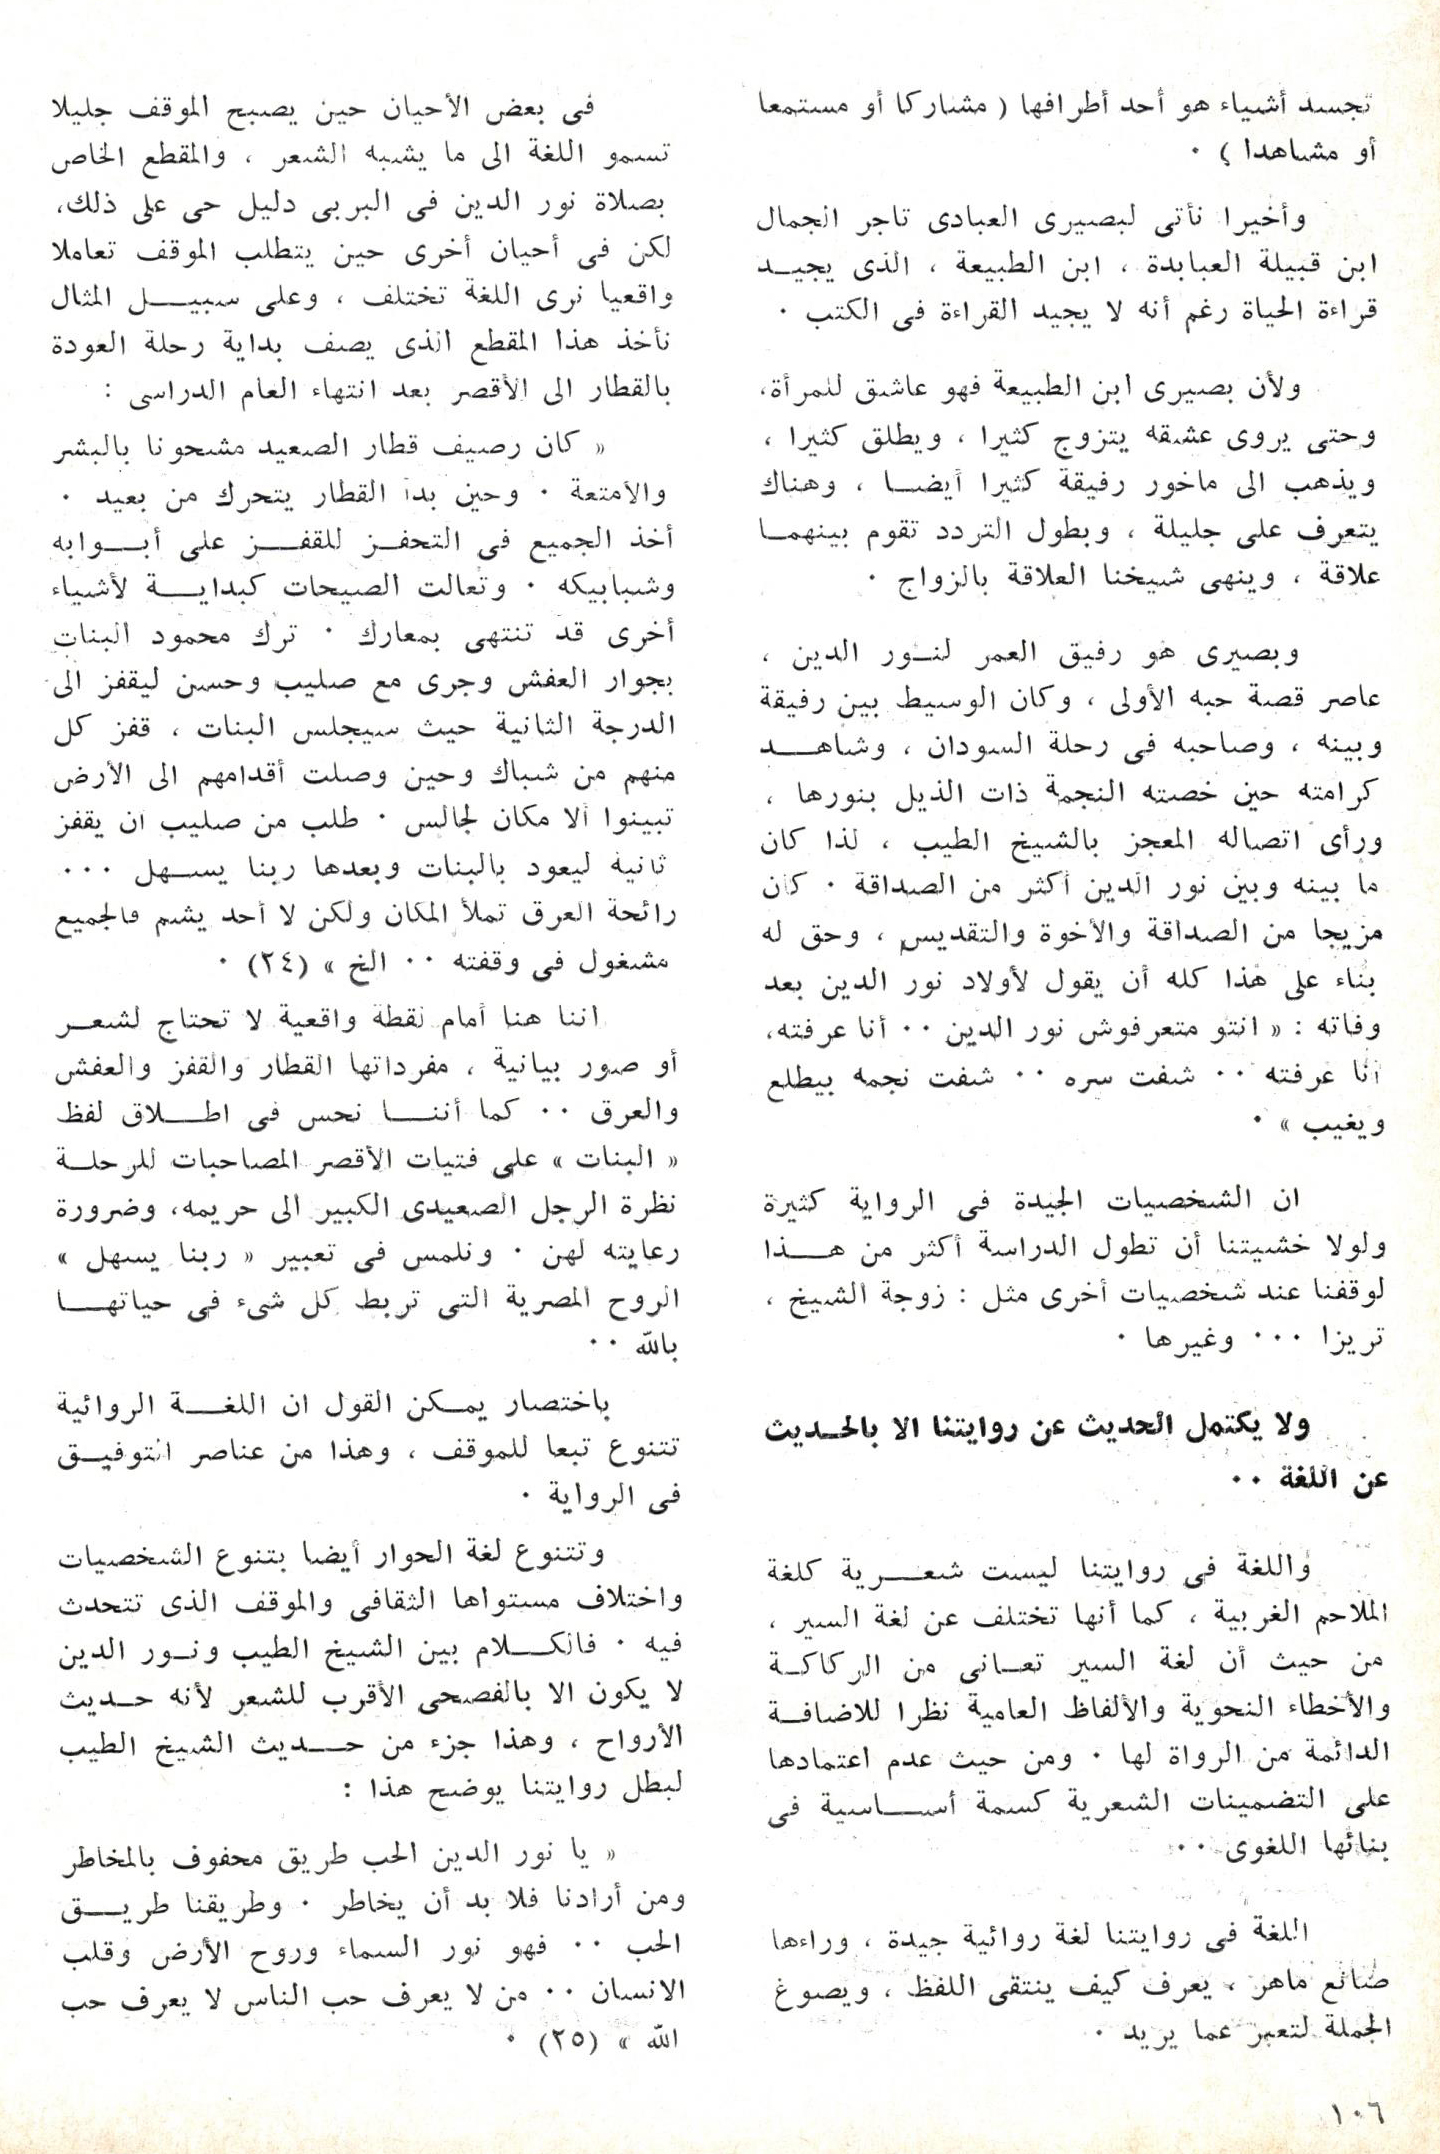 تجسد أشياء هو أحد أطرافها ( مشاركا أو مستمعا
أو مشاهدا ) ٠
وأخيرا نأتى لبصيرى العبادى تاجر الجمال
ابن قبيلة العبابدة ، ابن الطبيعة ، الذى يجيــد
قراءة الحياة رغم أنه لا يجيد القراءة فى الكتب ٠
ولأن بصيرى ابن الطبيعة فهو عاشق للمرأة،
وحتى يروى عشقه يتزوج كثيرا ، ويطلق كثيرا ،
ويذهب الى ماخور رفيقة كثيرا أيضــا ، وهناك
يتعرف على جليلة ، وبطول التردد تقوم بينهمــا
علاقة ، وينهى شيخنا العلاقة بالزواج ٠
وبصيرى هو رفيق العمر لنــور الدين ،
عاصر قصة حبه الأولى ، وكان الوسيط بين رفيقة
وبينه ، وصاحبه فى رحلة السودان ، وشاهــد
كرامته حين خصته النجمة ذات الذيل بنورها ،
ورأى اتصاله المعجز بالشيخ الطيب ، لذا كان
ما بينه وبين نور الدين أكثر من الصداقة ٠ كان
مزيجا من الصداقة والأخوة والتقديس ، وحق له
بناء على هذا كله أن يقول لأولاد نور الدين بعد
وفاته : « انتو متعرفوش نور الدين ٠٠ أنا عرفته،
أنا عرفته ٠٠ شفت سره ٠٠ شفت نجمه بيطلع
ويغيب » ٠
ان الشخصيات الجيدة فى الرواية كثيرة
ولولا خشيتنا أن تطول الدراسة أكثر من هــذا
لوقفنا عند شخصيات أخرى مثل : زوجة الشيخ ،
تريزا ٠٠٠ وغيرها ٠
ولا يكتمل الحديث عن روايتنا الا بالحـديث
عن اللغة ٠٠
واللغة فى روايتنا ليست شعــرية كلغة
الملاحم الغربية ، كما أنها تختلف عن لغة السير ،
من حيث أن لغة السير تعــانى من الركاكــة
والأخطاء النحوية والألفاظ العامية نظرا للاضافــة
الدائمة من الرواة لها ٠ ومن حيث عدم اعتمادها
على التضمينات الشعرية كسمة أســاسية فى
بنائها اللغوى ٠٠
اللغة فى روايتنا لغة روائية جيدة ، وراءها
صانع ماهر ، يعرف كيف ينتقى اللفظ ، ويصوغ
الجملة لتعبر عما يريد ٠
فى بعض الأحيان حين يصبح الموقف جليلا
تسمو اللغة الى ما يشبه الشعر ، والمقطع الخاص
بصلاة نور الدين فى البربى دليل حى على ذلك،
لكن فى أحيان أخرى حين يتطلب الموقف تعاملا
واقعيا نرى اللغة تختلف ، وعلى سبيــل المثال
نأخذ هذا المقطع الذى يصف بداية رحلة العودة
بالقطار الى الأقصر بعد انتهاء العام الدراسى :
« كان رصيف قطار الصعيد مشحونا بالبشر
والأمتعة ٠ وحين بدأ القطار يتحرك من بعيد ٠
أخذ الجميع فى التحفــز للقفــز على أبــوابه
وشبابيكه ٠ وتعالت الصيحات كبدايــة لأشياء
أخرى قد تنتهى بمعارك ٠ ترك محمود البنات
بجوار العفش وجرى مع صليب وحسن ليقفز الى
الدرجة الثانية حيث سيجلس البنات ، قفز كل
منهم من شباك وحين وصلت أقدامهم الى الأرض
تبينوا ألا مكان لجالس ٠ طلب من صليب أن يقفز
ثانية ليعود بالبنات وبعدها ربنا يســهل ٠٠٠
رائحة العرق تملأ المكان ولكن لا أحد يشم فالجميع
مشغول فى وقفته ٠٠ الخ » (٢٤) ٠
اننا هنا أمام نقطة واقعية لا تحتاج لشعــر
أو صور بيانية ، مفرداتها القطار والقفز والعفش
والعرق ٠٠ كما أننــا نحس فى اطــلاق لفظ
« البنات » على فتيات الأقصر المصاحبات للرحلــة
نظرة الرجل الصعيدى الكبير الى حريمه، وضرورة
رعايته لهن ٠ ونلمس فى تعبير « ربنا يسهل »
الروح المصرية التى تربط كل شىء فى حياتهــا
بالله ٠٠
باختصار يمــكن القول ان اللغــة الروائية
تتنوع تبعا للموقف ، وهذا من عناصر التوفيــق
فى الرواية ٠
وتتنوع لغة الحوار أيضا بتنوع الشخصيات
واختلاف مستواها الثقافى والموقف الذى تتحدث
فيه ٠ فالكــلام بين الشيخ الطيب ونــور الدين
لا يكون الا بالفصحى الأقرب للشعر لأنه حــديث
الأرواح ، وهذا جزء من حــديث الشيخ الطيب
لبطل روايتنا يوضح هذا :
« يا نور الدين الحب طريق محفوف بالمخاطر
ومن أرادنا فلا بد أن يخاطر ٠ وطريقنا طريــق
الحب ٠٠ فهو نور السماء وروح الأرض وقلب
الانسان ٠٠ من لا يعرف حب الناس لا يعرف حب
الله » (٢٥) ٠
١٠٦